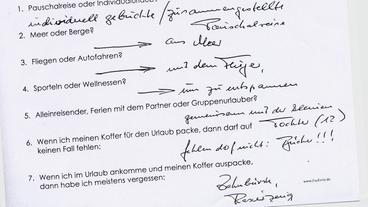 1. Pauschalreise oder Individualurlaub?
individuell gebuchte / zusammengestellte
Pauschalreise
2. Meer oder Berge?
→ ans Meer
3. Fliegen oder Autofahren?
→ mit dem Flieger,
4. Sporteln oder Wellnessen?
→ um zu entspannen
5. Alleinreisender, Ferien mit dem Partner oder Gruppenurlaub?
gemeinsam mit der kleinen
Tochter (12)
6. Wenn ich meinen Koffer für den Urlaub packe, dann darf auf
keinen Fall fehlen:
fehlen darf nicht: Bücher!!!
7. Wenn ich im Urlaub ankomme und meinen Koffer auspacke,
dann habe ich meistens vergessen:
Zahnbürste,
Rasierzeug